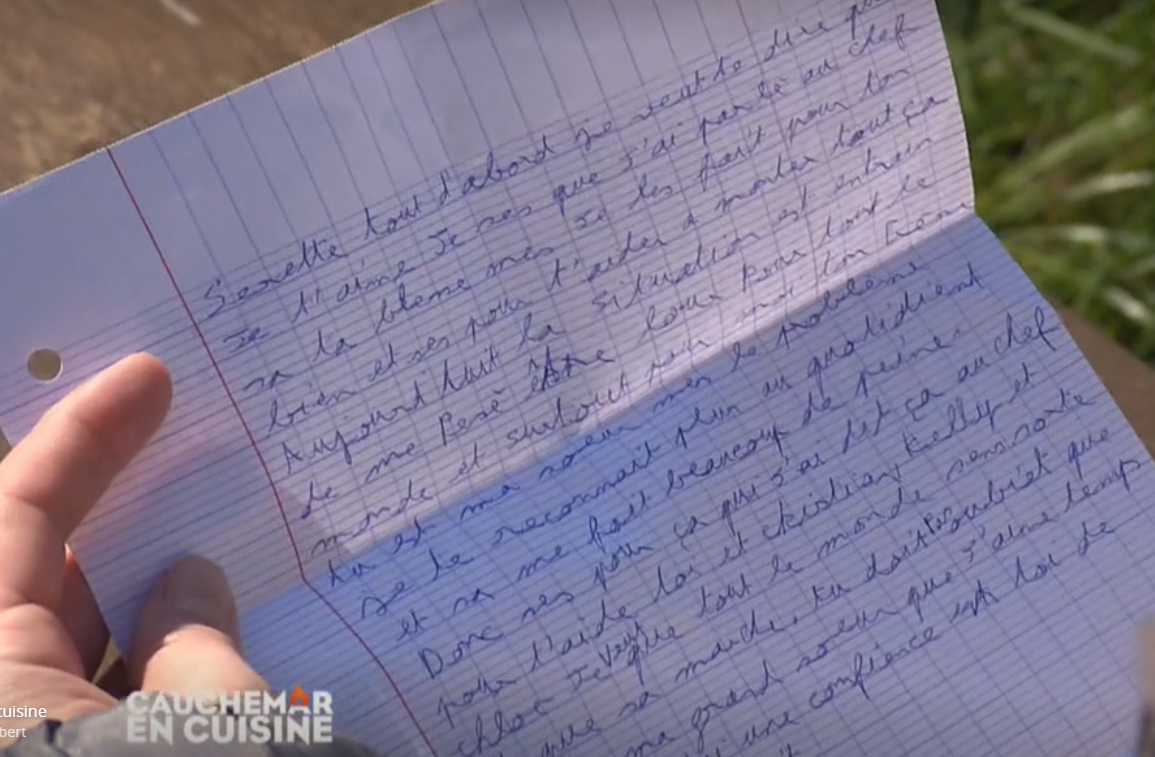 Sexette tout d'abord je veut te dire que
je t'aime je ses que j'ai parlé au chef
sa ta bleme mes je les fait pour ton
bien et ses pour t'aider a monter tout ça
Aujourd'huit la situation est entrain
de me Pesé lour pour tout le
monde et surtout pour moi ton
tu est ma soeur mes le problème
je te reconnait plus au quotidient
et sa me fait beaucoup de peine.
Donc ses pour ça qui j'ai dit ça au chef
pour t'aide toi et christian, Kelly et
chloe Je veut que tout le monde sens sorte
que sa marche. tu doit oubliet que
ma grand soeur que j'aime temp
une confience en toi de
CAUCHEMAR
EN CUISINE
cuisine
bert